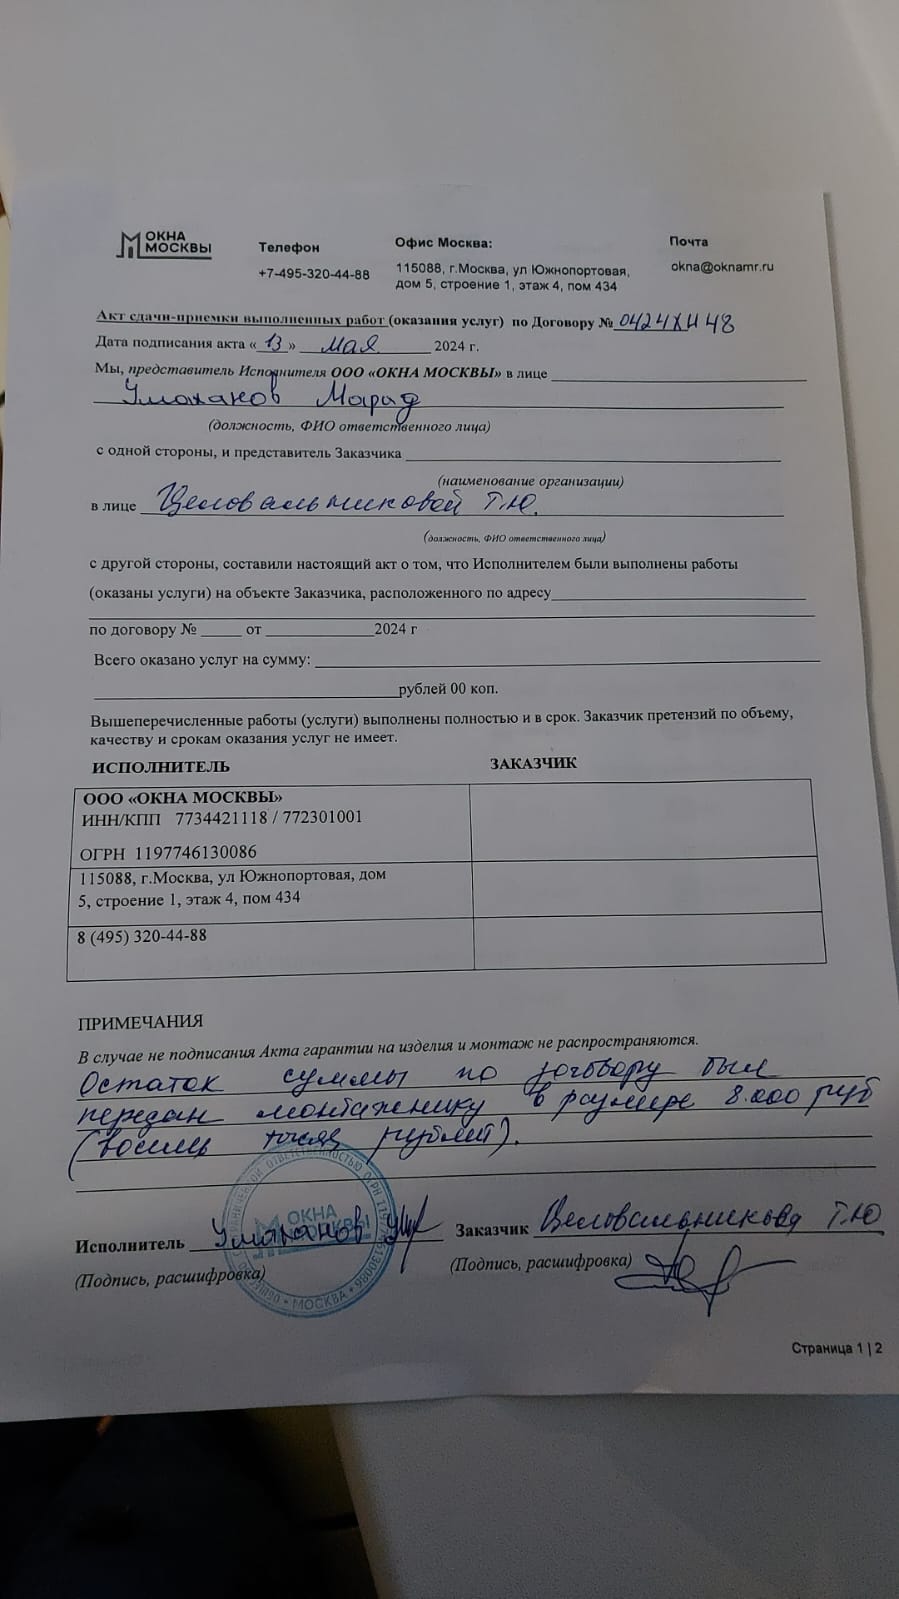 ОКНА
МОСКВЫ
Телефон
+7-495-320-44-88
Офис Москва:
115088, г.Москва, ул Южнопортовая,
дом 5, строение 1, этаж 4, пом 434
Почта
okna@oknamr.ru
Акт сдачи-приемки выполненных работ (оказания услуг) по Договору № 0424ХИ48
Дата подписания акта « 13 » мая 2024 г.
Мы, представитель Исполнителя ООО «ОКНА МОСКВЫ» в лице
Умаханов Марад
(должность, ФИО ответственного лица)
с одной стороны, и представитель Заказчика
(наименование организации)
в лице Целовальниковой Т.Ю.
(должность, ФИО ответственного лица)
с другой стороны, составили настоящий акт о том, что Исполнителем были выполнены работы
(оказаны услуги) на объекте Заказчика, расположенного по адресу
по договору № _____ от _____________2024 г
Всего оказано услуг на сумму:
рублей 00 коп.
Вышеперечисленные работы (услуги) выполнены полностью и в срок. Заказчик претензий по объему,
качеству и срокам оказания услуг не имеет.
ИСПОЛНИТЕЛЬ ЗАКАЗЧИК
ООО «ОКНА МОСКВЫ»
ИНН/КПП 7734421118 / 772301001
ОГРН 1197746130086
115088, г.Москва, ул Южнопортовая, дом
5, строение 1, этаж 4, пом 434
8 (495) 320-44-88
ПРИМЕЧАНИЯ
В случае не подписания Акта гарантии на изделия и монтаж не распространяются.
Остаток суммы по договору был
передан монтажнику в размере 8.000 руб
(восемь тысяч рублей).
ОКНА
МОСКВЫ
МОСКВА
Исполнитель Умаханов
Заказчик Целовальникова Т.Ю
(Подпись, расшифровка)
(Подпись, расшифровка)
Страница 1 | 2